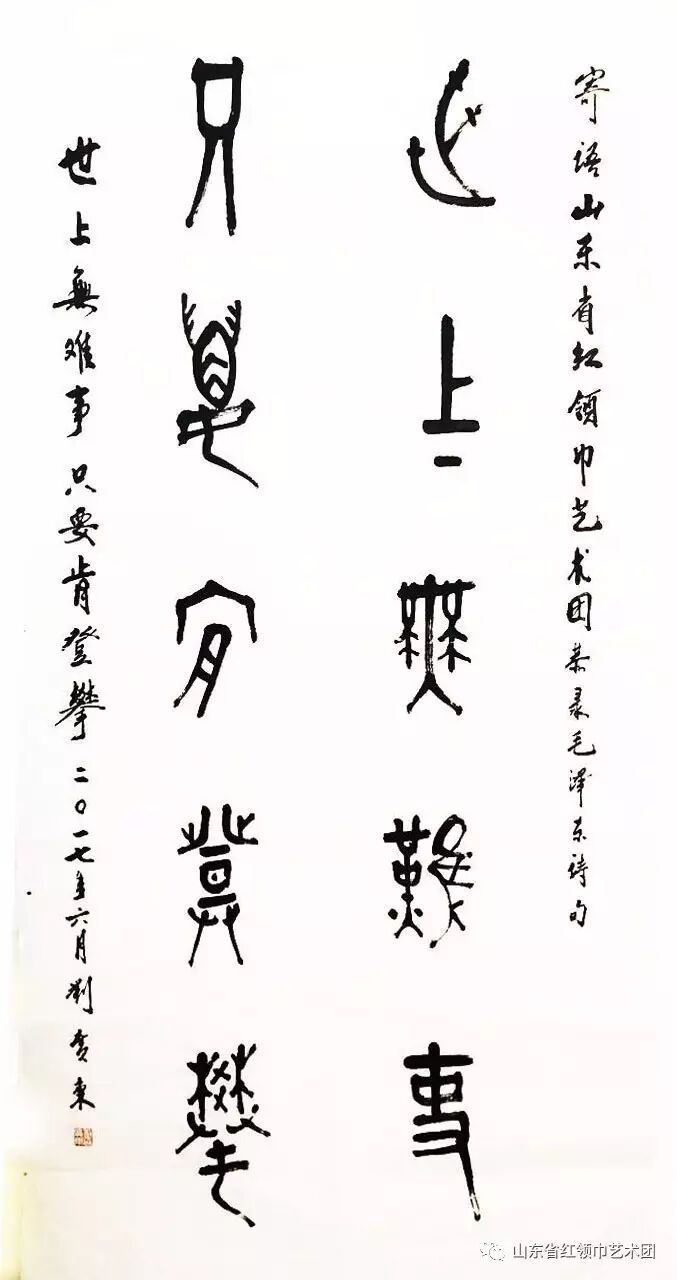 寄语山东省红领巾艺术团恭录毛泽东诗句
世上無難事
只要肯登攀
世上無难事只要肯登攀二〇一七年六月劉
山东省红领巾艺术团